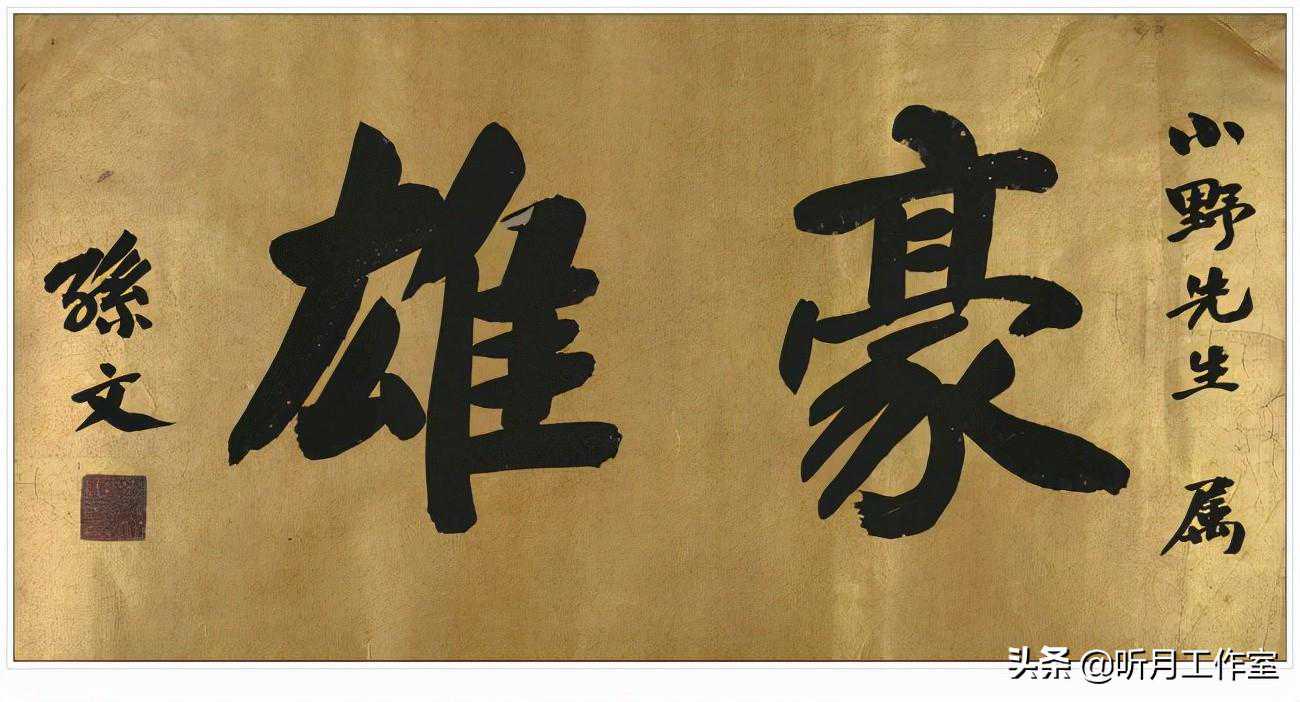 小野先生 属
豪雄
孫文
头条 @听月工作室